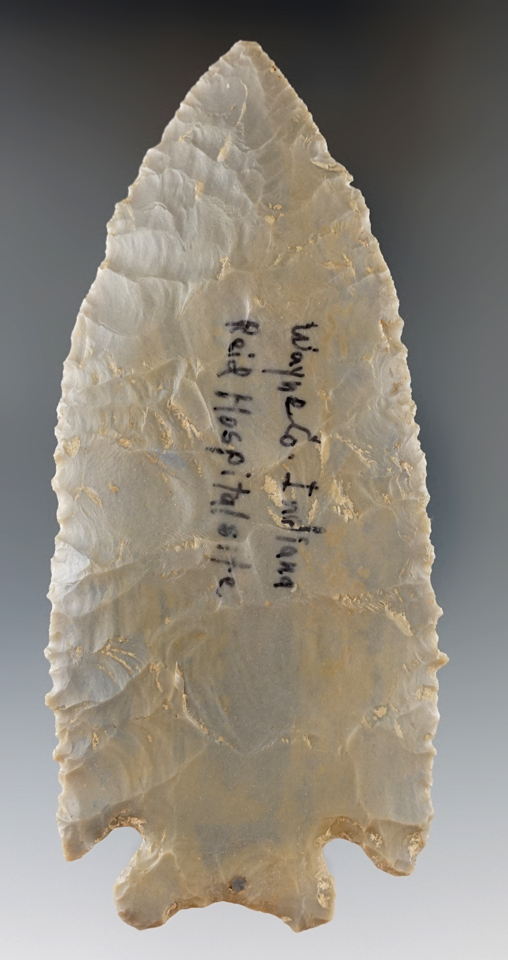 Wayne Co. Indiana
Reid Hospital site